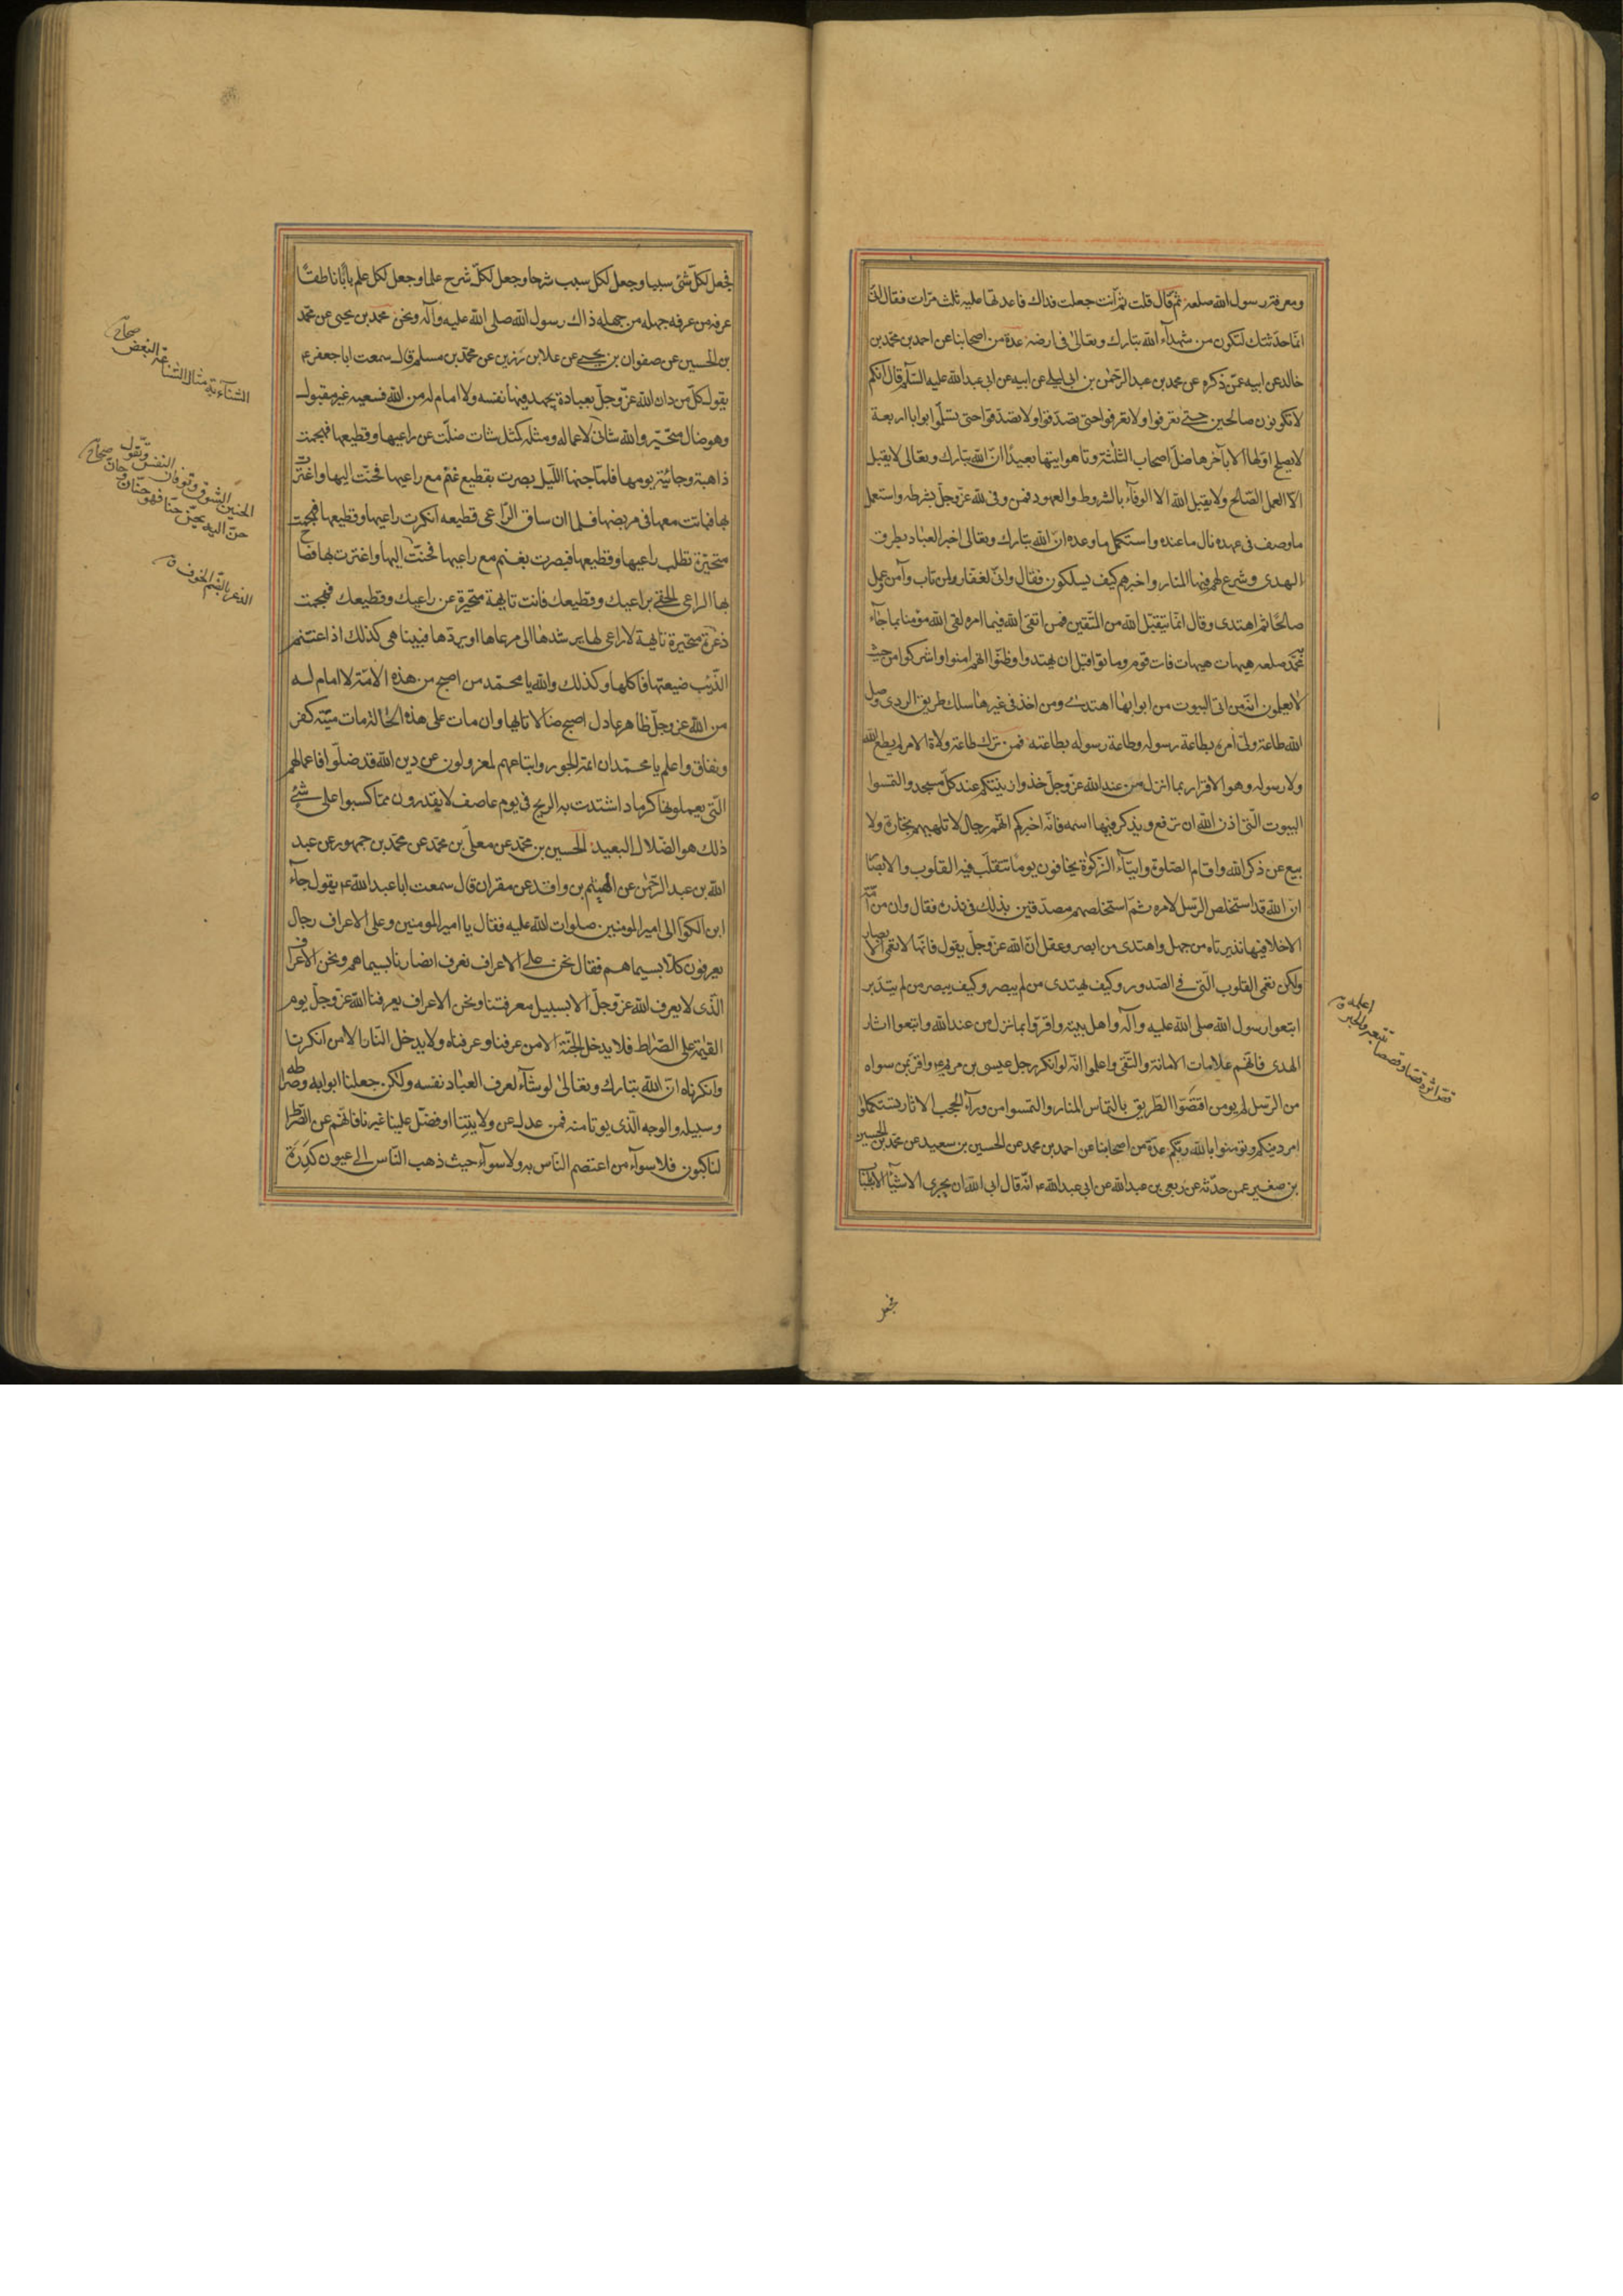 ومعرفة رسول الله صلعم ثم قال قلت ثم انت جعلت فداك فاعدتها عليه ثلث مرات فقال لى
انما حدثتك لتكون من شهدآء الله تبارك وتعالى فى ارضه عدة من اصحابنا عن احمد بن محمد بن
خالد عن ابيه عمن ذكره عن محمد بن عبد الرحمن بن ابى ليلى عن ابيه عن ابى عبد الله عليه السلم قال انكم
لا تكونون صالحين حتى تعرفوا ولا تعرفوا حتى تصدقوا ولا تصدقوا حتى تسلموا ابوابا اربعة
لا يصلح اولها الا بآخرها ضل اصحاب الثلثة وتاهوا تيها بعيدا ان الله تبارك وتعالى لا يقبل
الا العمل الصالح ولا يقبل الله الا الوفآء بالشروط والعهود فمن وفى لله عز وجل بشرطه واستعمل
ما وصف فى عهده نال ما عنده واستكمل ما وعده ان الله تبارك وتعالى اخبر العباد بطرق
الهدى وشرع لهم فيها المنار واخبرهم كيف يسلكون فقال وانى لغفار لمن تاب وآمن وعمل
صالحا ثم اهتدى وقال انما يتقبل الله من المتقين فمن اتقى الله فيما امره لقى الله مؤمنا بما جآء
به محمد صلعم هيهات هيهات فات قوم وماتوا قبل ان يهتدوا وظنوا انهم امنوا واشركوا من حيث
لا يعلمون انه من اتى البيوت من ابوابها اهتدى ومن اخذ فى غيرها سلك طريق الردى وصل
الله طاعة ولى امره بطاعة رسوله وطاعة رسوله بطاعته فمن ترك طاعة ولاة الامر لم يطع الله
ولا رسوله وهو الاقرار بما انزل من عند الله عز وجل خذوا زينتكم عند كل مسجد والتمسوا
البيوت التى اذن الله ان ترفع ويذكر فيها اسمه فانه اخبركم انهم رجال لا تلهيهم تجارة ولا
بيع عن ذكر الله واقام الصلوة وايتآء الزكوة يخافون يوما تتقلب فيه القلوب والابصا
ان الله قد استخلص الرسل لامره ثم استخلصهم مصدقين بذلك فى نذره فقال وان من امة
الا خلا فيها نذير تاه من جهل واهتدى من ابصر وعقل ان الله عز وجل يقول فانها لا تعمى الابصار
ولكن تعمى القلوب التى فى الصدور وكيف يهتدى من لم يبصر وكيف يبصر من لم يتدبر
اتبعوا رسول الله صلى الله عليه وآله واهل بيته واقروا بما نزل من عند الله واتبعوا اثار
الهدى فانهم علامات الامانة والتقى واعلموا انه لو انكر رجل عيسى بن مريم ع واقر بمن سواه
من الرسل لم يومن اقتصوا الطريق بالتماس المنار والتمسوا من ورآء الحجب الاثار تستكملوا
امر دينكم وتومنوا بالله ربكم عدة من اصحابنا عن احمد بن محمد عن الحسين بن سعيد عن محمد بن الحسين
بن صغير عمن حدثه عن ربعى بن عبد الله عن ابى عبد الله ع انه قال ابى الله ان يجرى الاشيآء الا
فجعل
فجعل لكل شئ سببا وجعل لكل سبب شرحا وجعل لكل شرح علما وجعل لكل علم بابا ناطقا
عرفه من عرفه جهله من جهله ذاك رسول الله صلى الله عليه وآله ونحن محمد بن يحيى عن محمد
بن الحسين عن صفوان بن يحيى عن علا بن رزين عن محمد بن مسلم قال سمعت ابا جعفر ع
يقول كل من دان الله عز وجل بعبادة يجهد فيها نفسه ولا امام له من الله فسعيه غير مقبول
وهو ضال متحير والله شانئ لاعماله ومثله كمثل شاة ضلت عن راعيها وقطيعها فهجمت
ذاهبة وجائية يومها فلما جنها الليل بصرت بقطيع غنم مع راعيها فحنت اليها واغترت
بها فباتت معها فى مربضها فلما ان ساق الراعى قطيعه انكرت راعيها وقطيعها فهجمت
متحيرة تطلب راعيها وقطيعها فبصرت بغنم مع راعيها فحنت اليها واغترت بها فصاح
بها الراعى الحقى براعيك وقطيعك فانت تايهة متحيرة عن راعيك وقطيعك فهجمت
ذعرة متحيرة تايهة لا راعى لها يرشدها الى مرعاها او يردها فبينا هى كذلك اذا اغتنم
الذئب ضيعتها فاكلها وكذلك والله يا محمد من اصبح من هذه الامة لا امام له
من الله عز وجل ظاهر عادل اصبح ضالا تايها وان مات على هذه الحالة مات ميتة كفر
ونفاق واعلم يا محمد ان ائمة الجور واتباعهم لمعزولون عن دين الله قد ضلوا فاعمالهم
التى يعملونها كرماد اشتدت به الريح فى يوم عاصف لا يقدرون مما كسبوا على شئ
ذلك هو الضلال البعيد الحسين بن محمد عن معلى بن محمد عن محمد بن جمهور عن عبد
الله بن عبد الرحمن عن الهيثم بن واقد عن مقرن قال سمعت ابا عبد الله ع يقول جآء
ابن الكوا الى امير المومنين صلوات الله عليه فقال يا امير المومنين وعلى الاعراف رجال
يعرفون كلا بسيماهم فقال نحن على الاعراف نعرف انصارنا بسيماهم ونحن الاعراف
الذى لا يعرف الله عز وجل الا بسبيل معرفتنا ونحن الاعراف يعرفنا الله عز وجل يوم
القيمة على الصراط فلا يدخل الجنة الا من عرفنا وعرفناه ولا يدخل النار الا من انكرنا
وانكرناه ان الله تبارك وتعالى لو شآء لعرف العباد نفسه ولكن جعلنا ابوابه وصراطه
وسبيله والوجه الذى يوتا منه فمن عدل عن ولايتنا او فضل علينا غيرنا فانهم عن الصراط
لناكبون فلا سوآء من اعتصم الناس به ولا سوآء حيث ذهب الناس الى عيون كدرة
الشنآءة مثال الشناعة البغض صحاح
الحنين الشوق وتوقان النفس وتقول
حن اليه يحن حنينا فهو حان صحاح
الذعر بالضم الخوف ق
قص اثره قصا وقصصا تتبعه والخبر
اعلمه ق